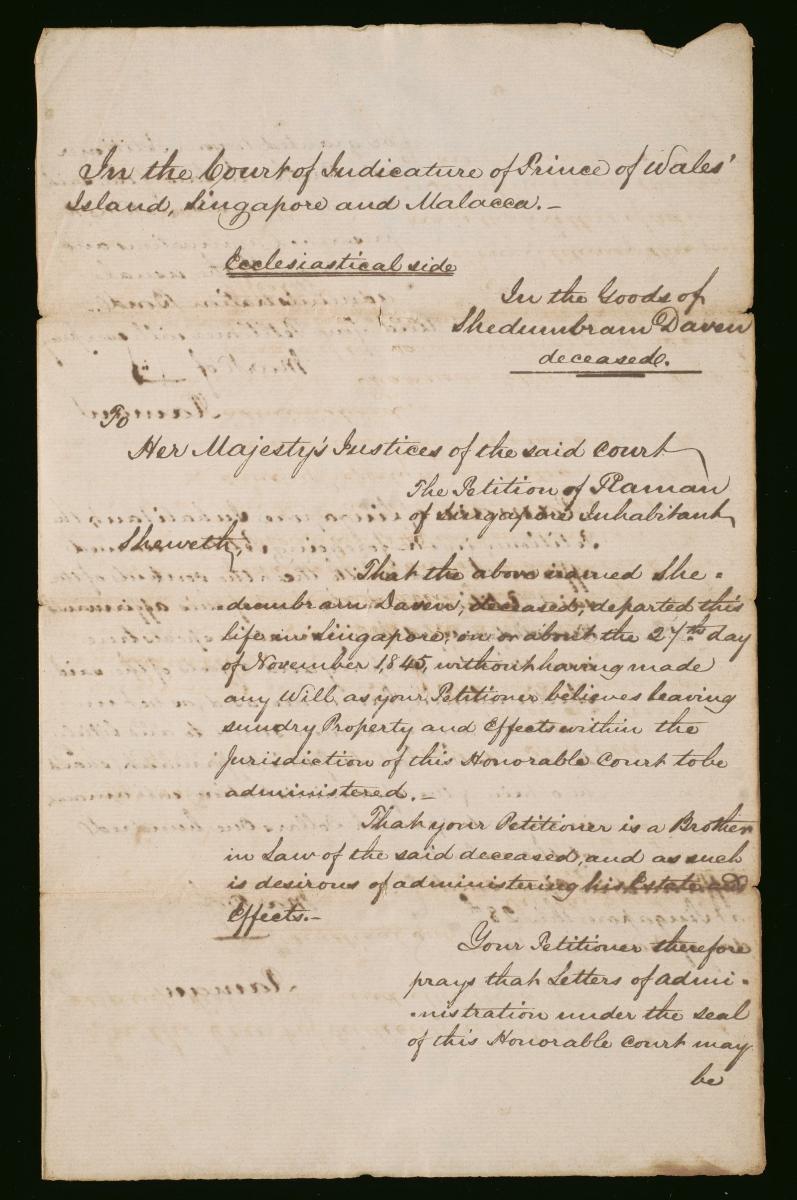 In the Court of Judicature of Prince of Wales'
Island, Singapore and Malacca.-
Ecclesiastical side
In the Goods of
Shedumbram Daven
deceased.
To
Her Majesty's Justices of the said Court
The Petition of Raman
of Singapore Inhabitant
Sheweth,
That the above named She-
dumbram Daven, deceased, departed this
life in Singapore, on or about the 27th day
of November 1845, without having made
any Will as your Petitioner believes leaving
sundry Property and Effects within the
Jurisdiction of this Honorable Court to be
administered.-
That your Petitioner is a Brother
in Law of the said deceased, and as such
is desirous of administering his Estate and
Effects.-
Your Petitioner therefore
prays that Letters of admi-
-nistration under the seal
of this Honorable Court may
be